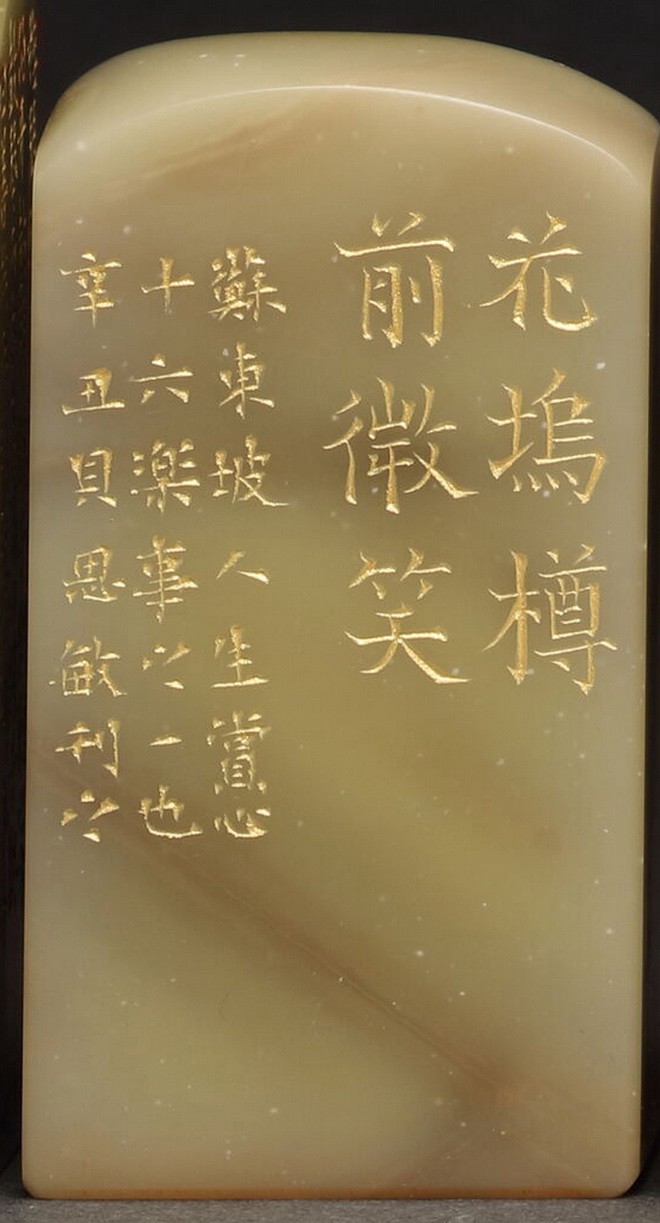 花塢樽
前微笑
蘇東坡人生賞心
十六樂事之一也
辛丑貝思敏刊之